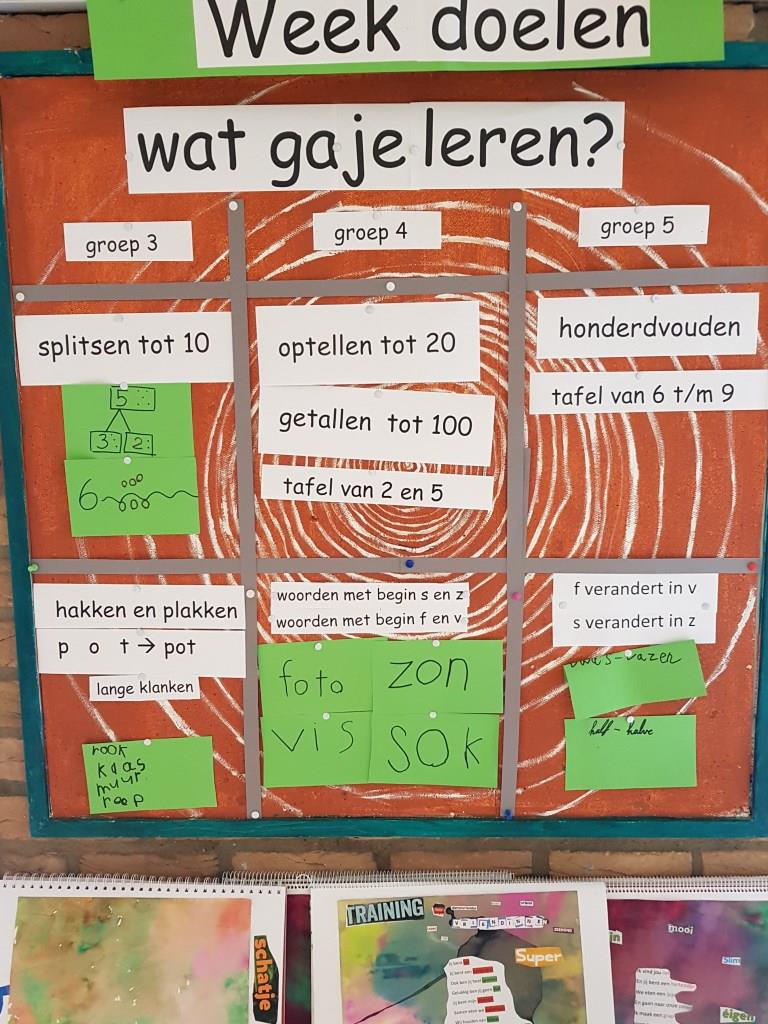 Week doelen
wat ga je leren?
groep 3
groep 4
groep 5
splitsen tot 10
5
3 2
6
optellen tot 20
getallen tot 100
tafel van 2 en 5
honderdvouden
tafel van 6 t/m 9
hakken en plakken
p o t → pot
lange klanken
rook
kaas
muur
reep
woorden met begin s en z
woorden met begin f en v
foto
zon
vis
sok
f verandert in v
s verandert in z
vazen
half - halve
schatje
TRAINING
VRIENDINNEN
Super
mooi
Slim
eigen